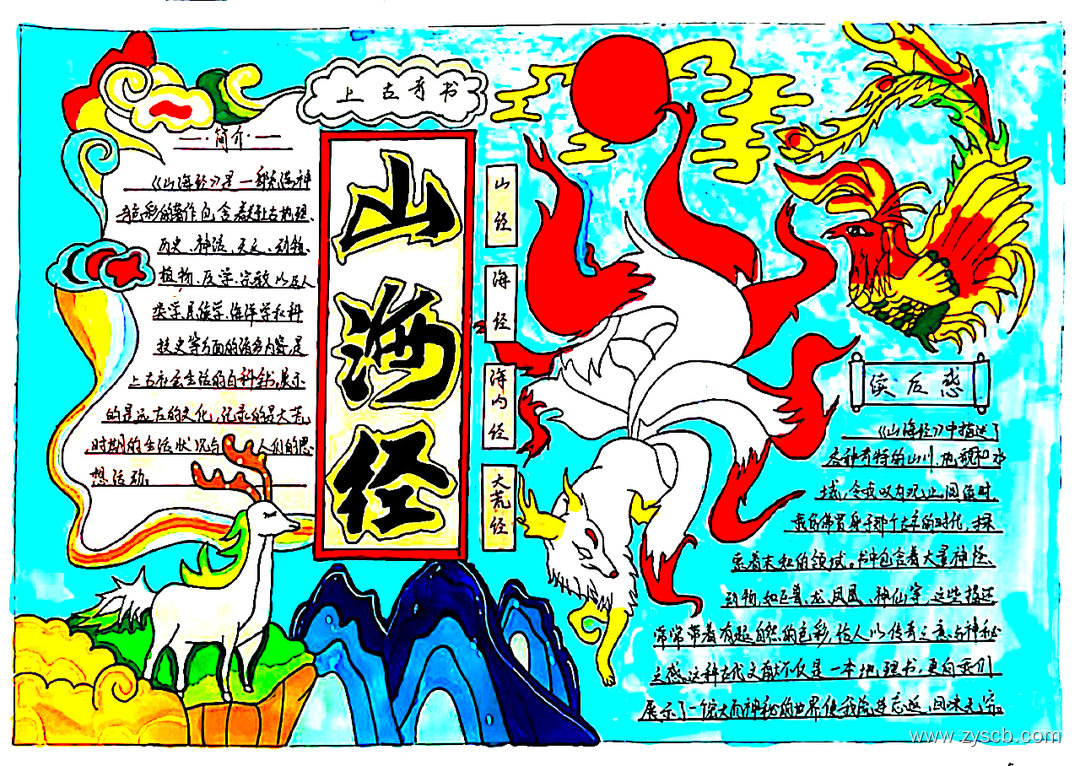 上古奇书
简介
《山海经》是一部充满神
奇色彩的著作包含着上古地理、
历史、神话、天文、动物、
植物、医学、宗教以及人
类学、民俗学、海洋学和科
技史等方面的诸多内容,是
上古社会生活的百科全书,展示
的是远古的文化,记录的是大荒
时期的生活状况与人们的思
想活动。
山海经
山经
海经
海内经
大荒经
读后感
《山海经》中描述了
各种奇特的山川、地貌和水
域,令我叹为观止,同时
我仿佛置身于那个古老的时代,探
索着未知的领域。书中包含着大量神怪
动物,如巨兽、龙、凤凰、神仙等,这些描述
常常带着有超自然的色彩,给人以传奇之意与神秘
之感,这种古代文献不仅是一本地理书,更向我们
展示了一个宏大而神秘的世界使我流连忘返,回味无穷。
www.zyscb.com